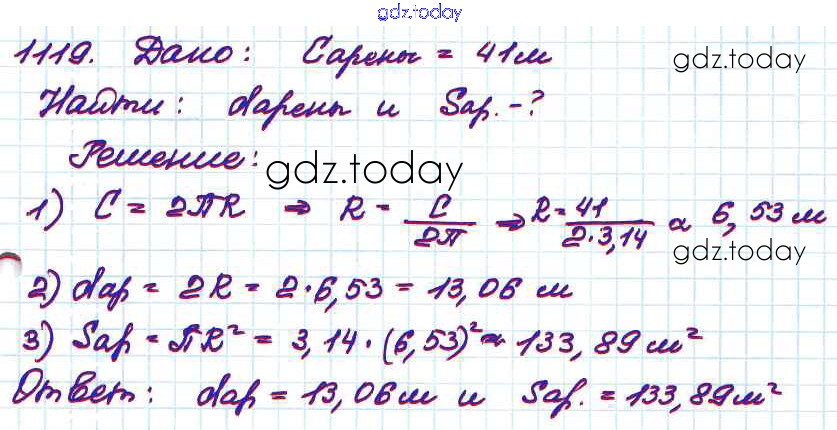 gdz.today
1119. Дано: Cарены = 41м
gdz.today
Найти: dарены и Sар. -?
Решение:
gdz.today
1) C = 2πR ⇒ R = C/2π ⇒ R = 41/2·3,14 ≈ 6,53 м
gdz.today
2) dар = 2R = 2·6,53 = 13,06 м
3) Sар = πR² = 3,14·(6,53)² ≈ 133,89 м²
Ответ: dар = 13,06 м и Sар. = 133,89 м²